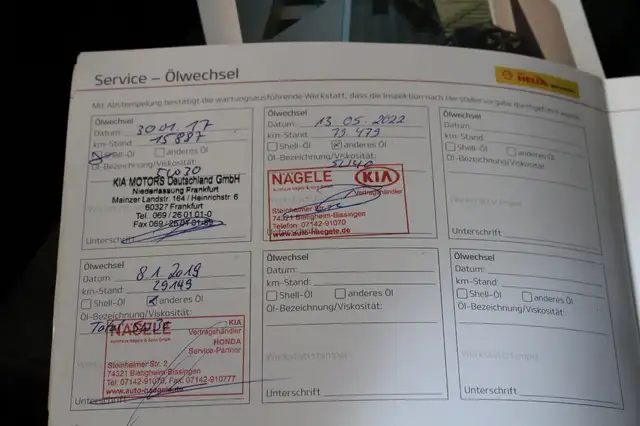 Service – Ölwechsel
HELIX
Mit Abstempelung bestätigt die wartungsausführende Werkstatt, dass die Inspektion nach Herstellervorgabe durchgeführt wurde.
Ölwechsel
Datum: 30 01 17
km-Stand: 15887
Shell-Öl anderes Öl
Öl-Bezeichnung/Viskosität:
5W30
KIA MOTORS Deutschland GmbH
Niederlassung Frankfurt
Mainzer Landstr. 164 / Heinrichstr. 6
60327 Frankfurt
Tel. 069 / 26 01 01-0
Fax 069
Unterschrift
Ölwechsel
Datum: 13.05.2022
km-Stand: 73 479
Shell-Öl anderes Öl
Öl-Bezeichnung/Viskosität:
NÄGELE KIA
Vertragshändler
Steinheimer
74321 Bietigheim-Bissingen
Telefon: 07142-91070
www.auto-naegele.de
Unterschrift
Ölwechsel
Datum:
km-Stand:
Shell-Öl anderes Öl
Öl-Bezeichnung/Viskosität:
Werkstattstempel
Unterschrift
Ölwechsel
Datum: 8.1.2019
km-Stand: 29149
Shell-Öl anderes Öl
Öl-Bezeichnung/Viskosität:
Total
NÄGELE
KIA
Vertragshändler
HONDA
Service-Partner
Steinheimer Str. 2
74321 Bietigheim-Bissingen
Tel. 07142-91070, Fax: 07142-910777
www.auto-naegele.de
Unterschrift
Ölwechsel
Datum:
km-Stand:
Shell-Öl anderes Öl
Öl-Bezeichnung/Viskosität:
Werkstattstempel
Unterschrift
Ölwechsel
Datum:
km-Stand:
Shell-Öl anderes Öl
Öl-Bezeichnung/Viskosität:
Werkstattstempel
Unterschrift